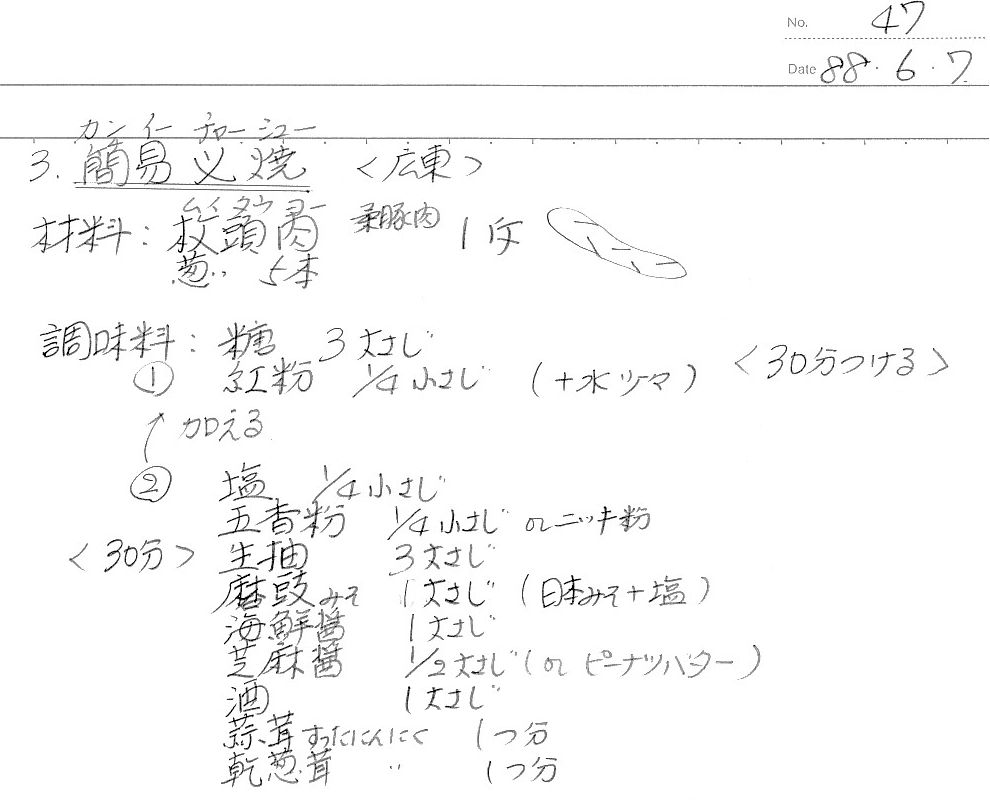 No. 47
Date 88・6・7
カンイー チャーシュー
3. 簡易叉焼 <広東>
ムイタウヨー
材料: 枚頭肉 豚肉 1斤
葱 5本
調味料: 糖 3大さじ
① 紅粉 1/4小さじ (+水少々) <30分つける>
↑加える
② 塩 1/4小さじ
五香粉 1/4小さじ orニッキ粉
<30分> 生抽 3大さじ
磨豉みそ 1大さじ (日本みそ+塩)
海鮮醤 1大さじ
芝麻醤 1/2大さじ (or ピーナツバター)
酒 1大さじ
蒜茸 すったにんにく 1つ分
乾葱茸 〃 1つ分